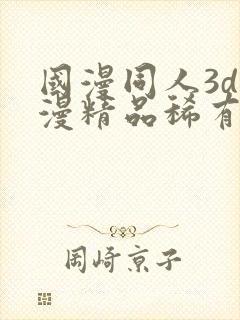 國漫同人3d
漫精品稀有
岡崎京子